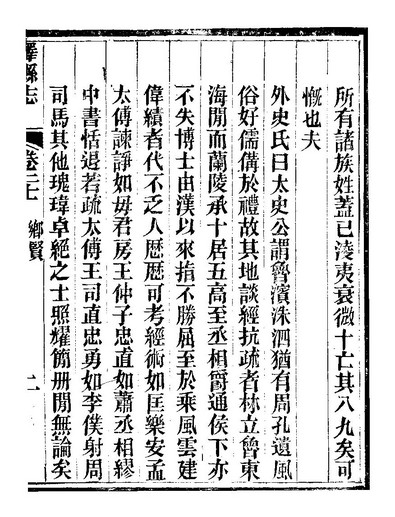 所有諸族姓蓋已淩夷衰微十亡其八九矣可
慨也夫
外史氏曰太史公謂魯濱洙泗猶有周孔遺風
俗好儒備於禮故其地談經抗疏者林立魯東
海閒而蘭陵承十居五高至丞相爵通侯下亦
不失博士由漢以來指不勝屈至於乘風雲建
偉績者代不乏人歴歴可考經術如匡樂安孟
太傅諫諍如毋君房王仲子忠直如蕭丞相繆
中書恬退若疏太傅王司直忠勇如李僕射周
司馬其他瑰瑋卓絕之士照耀簡册閒無論矣
嶧縣志
卷二十
鄉賢
二